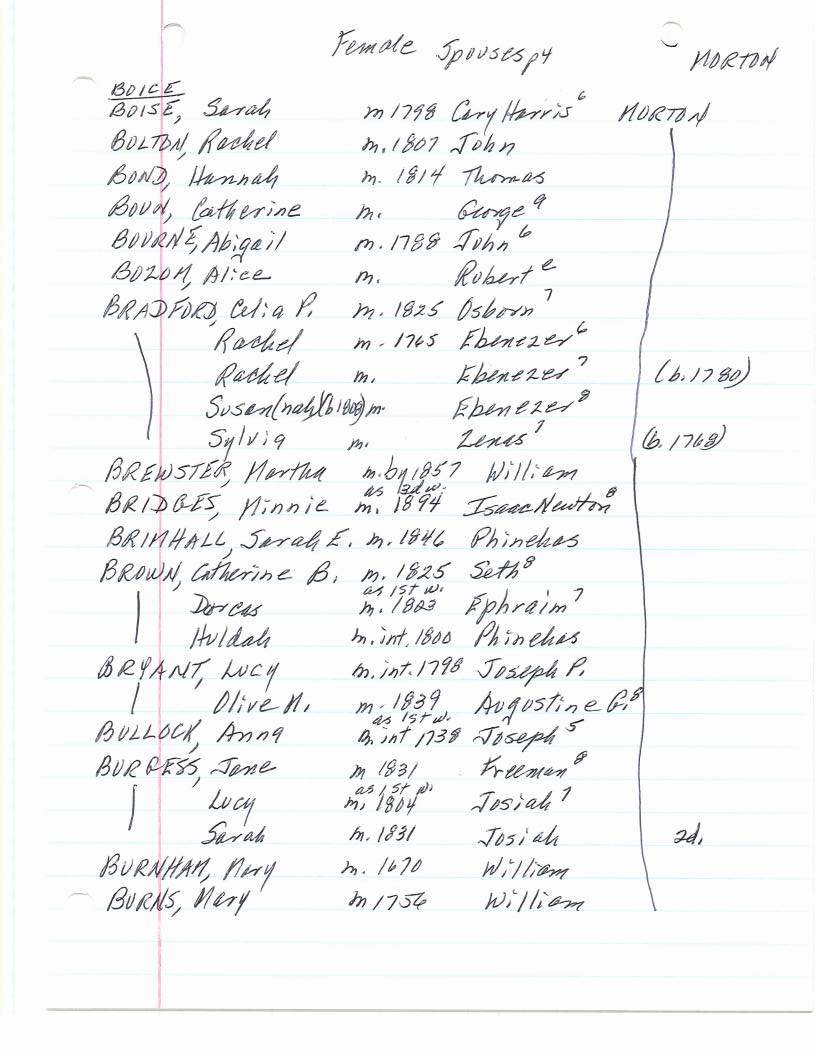 Female Spouses p4 MORTON
BOICE
BOISE, Sarah m 1798 Cary Harris⁶ MORTON
BOLTON, Rachel m. 1807 John
BOND, Hannah m. 1814 Thomas
BOUN, Catherine m. George⁹
BOURNE, Abigail m. 1788 John⁶
BOZOM, Alice m. Robert ᵉ
BRADFORD, Celia P. m. 1825 Osborn⁷
Rachel m. 1765 Ebenezer⁶
Rachel m. Ebenezer⁷ (b. 1780)
Susan(nah)(b1808) m. Ebenezer⁸
Sylvia m. Zenas⁷ (b. 1768)
BREWSTER, Martha m. by 1857 William
as 3d w.
BRIDGES, Minnie m. 1894 Isaac Newton⁸
BRIMHALL, Sarah E. m. 1846 Phinehas
BROWN, Catherine B. m. 1825 Seth⁸
as 1st w.
Dorcas m. 1803 Ephraim⁷
Huldah m. int. 1800 Phinehas
BRYANT, Lucy m. int. 1798 Joseph P.
Olive M. m. 1839 Augustine G.⁸
as 1st w.
BULLOCK, Anna m. int 1738 Joseph⁵
BURGESS, Jane m 1831 Freeman⁸
as 1st w.
Lucy m. 1804 Josiah⁷
Sarah m. 1831 Josiah 2d.
BURNHAM, Mary m. 1670 William
BURNS, Mary m 1756 William